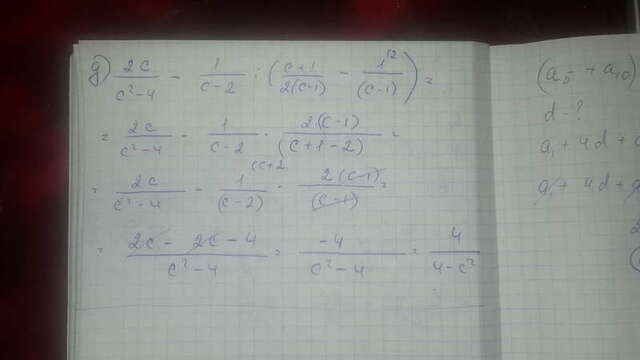 д) 2c/(c²-4) - 1/(c-2) : ((c+1)/(2(c-1)) - 1^(2)/(c-1)) =
= 2c/(c²-4) - 1/(c-2) · 2(c-1)/(c+1-2) =
= 2c/(c²-4) - 1^(c+2)/(c-2) · 2(c-1)/(c-1) =
= (2c - 2c - 4)/(c²-4) = -4/(c²-4) = 4/(4-c²)
(a₅ + a₁₀)
d - ?
a₁ + 4d +
a₁ + 4d +